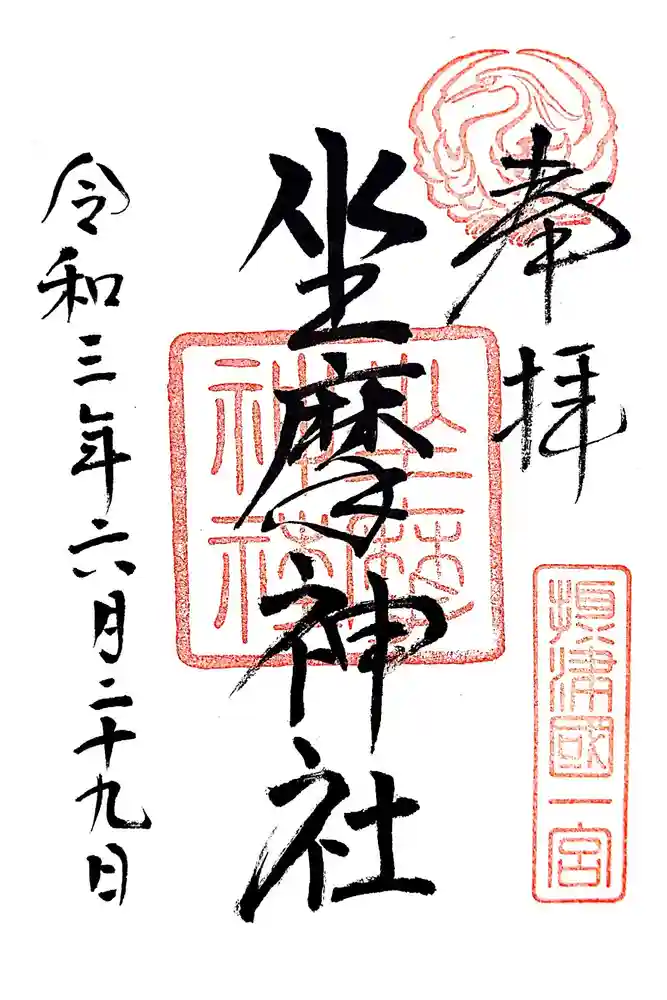 奉拝
摂津國一宮
坐摩神社
坐摩神社
令和三年六月二十九日